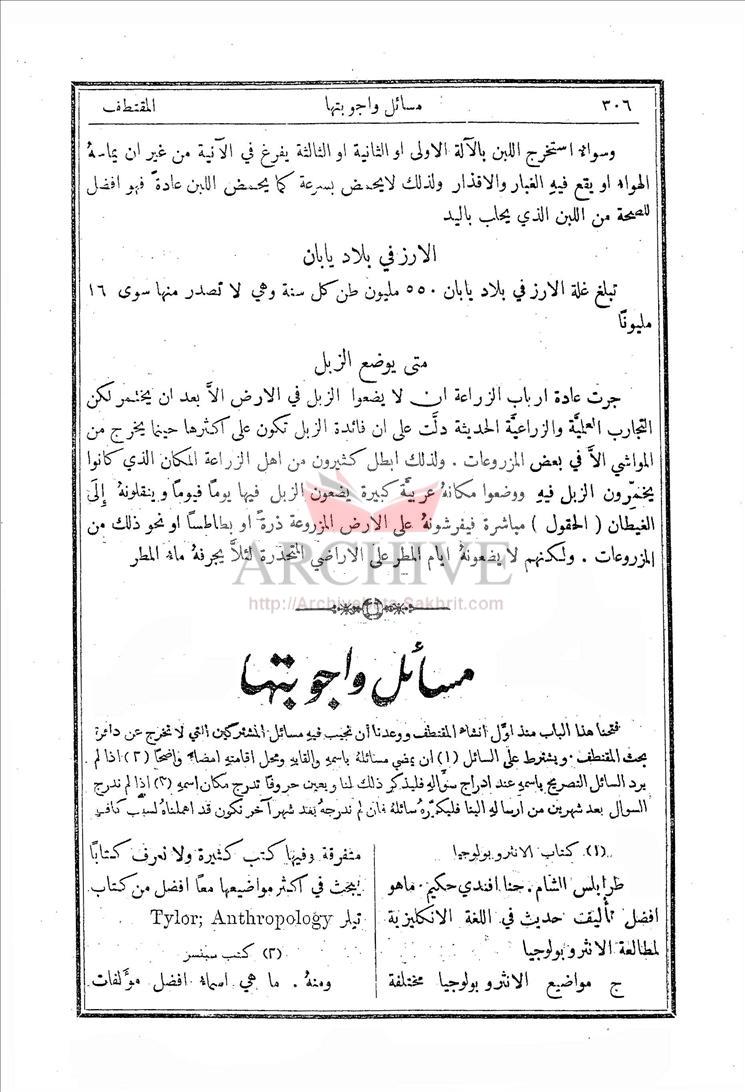 ٣٠٦ مسائل واجوبتها المقتطف
وسواء استخرج اللبن بالآلة الاولى او الثانية او الثالثة يفرغ في الآنية من غير ان يماسهُ
الهواء او يقع فيهِ الغبار والاقذار ولذلك لايحمض بسرعة كما يحمض اللبن عادةً فهو افضل
للصحة من اللبن الذي يحلب باليد
الارز في بلاد يابان
تبلغ غلة الارز في بلاد يابان ٥٥٠ مليون طن كل سنة وهي لا تصدر منها سوى ١٦
مليونًا
متى يوضع الزبل
جرت عادة ارباب الزراعة ان لا يضعوا الزبل في الارض الاَّ بعد ان يختمر لكن
التجارب العلميَّة والزراعيَّة الحديثة دلَّت على ان فائدة الزبل تكون على اكثرها حينما يخرج من
المواشي الاَّ في بعض المزروعات . ولذلك ابطل كثيرون من اهل الزراعة المكان الذي كانوا
يخمّرون الزبل فيهِ ووضعوا مكانهُ عربيَّة كبيرة يضعون الزبل فيها يومًا فيومًا وينقلونهُ إِلى
الغيطان ( الحقول ) مباشرة فيفرشونهُ على الارض المزروعة ذرةً او بطاطسًا او نحو ذلك من
المزروعات . ولكنهم لا يضعونهُ ايام المطر على الاراضي المتحدرة لئلاَّ يجرفهُ ماء المطر
ARCHIVE
http://Archivebeta.Sakhrit.com
مسائل واجوبتها
فتحنا هذا الباب منذ اوَّل انشاء المقتطف ووعدنا أن نجيب فيهِ مسائل المشتركين التي لا تخرج عن دائرة
بحث المقتطف . ويشترط على السائل (١) أن يمضي مسائلهُ باسمهِ والقابهِ ومحل اقامتهِ امضاءً واضحًا (٢) اذا لم
يرد السائل التصريح باسمهِ عند ادراج سؤالهِ فليذكر ذلك لنا ويعين حروفًا تدرج مكان اسمهِ (٣) اذا لم ندرج
السوال بعد شهرين من ارسالهِ الينا فليكررهُ سائلهُ فان لم ندرجهُ بعد شهر آخر نكون قد اهملناهُ لسبب كافٍ
(١) كتاب الانثروبولوجيا
طرابلس الشام . حنا افندي حكيم . ماهو
افضل تأليف حديث في اللغة الانكليزية
لمطالعة الانثروبولوجيا
ج مواضيع الانثروبولوجيا مختلفة
متفرقة وفيها كتب كثيرة ولا نعرف كتابًا
يبحث في اكثر مواضيعها معًا افضل من كتاب
تيلر Tylor; Anthropology
(٢) كتب سبنسر
ومنهُ . ما هي اسماء افضل مؤلفات